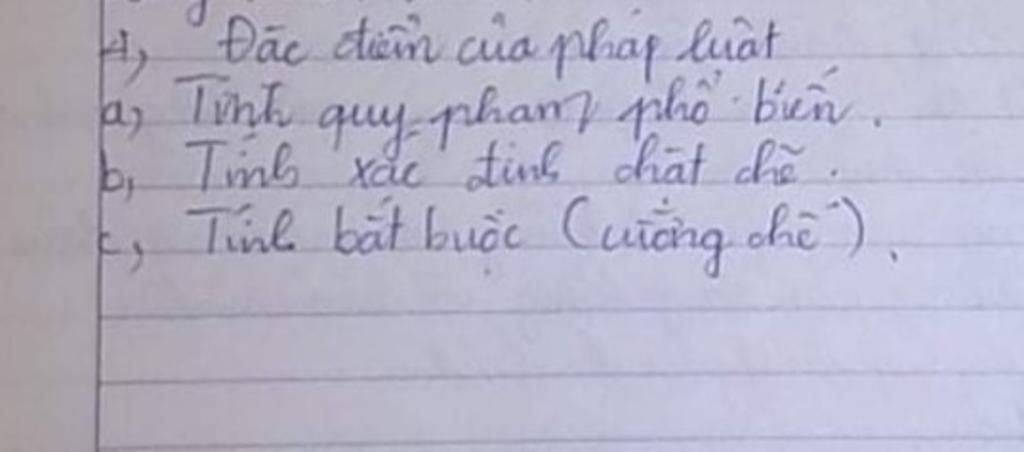 4, Đặc điểm của pháp luật
a, Tính quy phạm phổ biến.
b, Tính xác định chặt chẽ.
c, Tính bắt buộc (cưỡng chế).